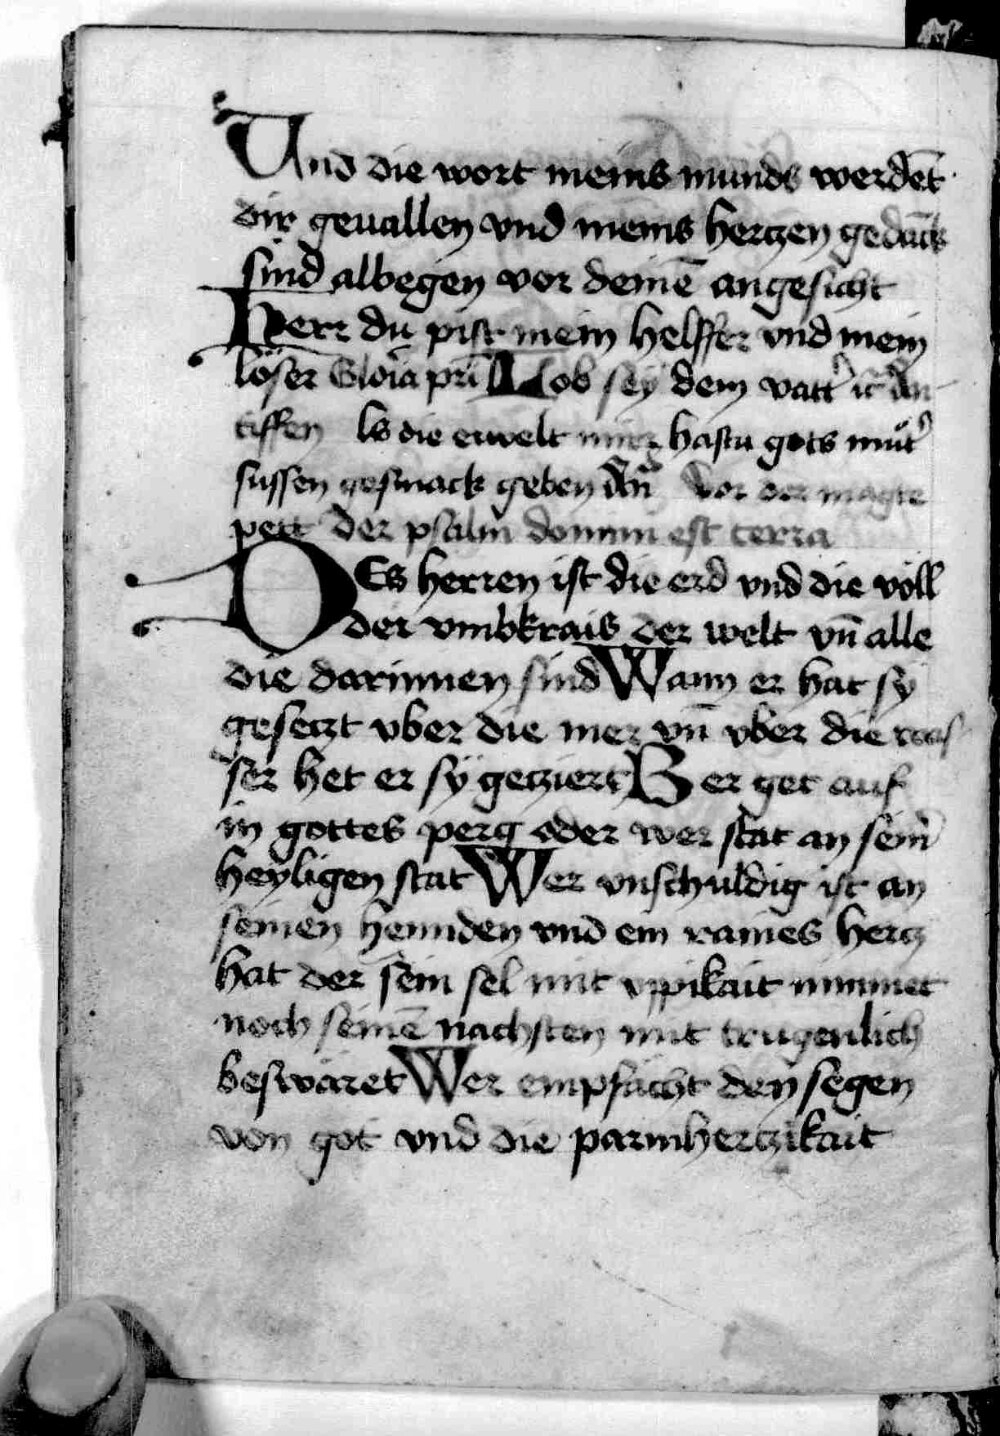 Und die wort meins munds werdēt
dir geuallen vnd meins hertzen gedāck
sind albegen vor deinē angesicht
Herr du pist mein helffer vnd mein
löser Gloīa prī Lob sey dem vatt' An
tiffen ls die ewelt mirr hastu gots mūt'
sussen gesmack geben Añ Vor der magte
pett Der psalm domini est terra
DEs herren ist die erd vnd die völl
der vmbkrais der welt vn̄ alle
die darinnen sind Wann er hat sy
gesetzt vber die mer vn̄ vber die was
ser het er sy getziert Wer get auf
in gottes perg oder wer stat an sein'
heyligen stat Wer vnschuldig ist an
seinen hennden vnd ein raines hertz
hat der sein sel mit vppikait nimmet
noch seinē nachsten mit trugenlich
beswäret Wer empfācht den segen
von got vnd die parmhertzikait